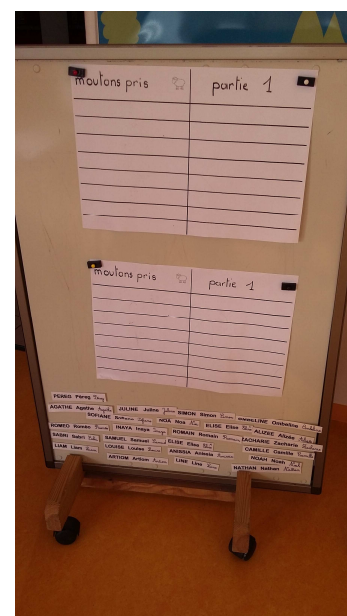 moutons pris partie 1
moutons pris partie 1
PEREG Péreg
AGATHE Agathe Agathe JULINE Juline Juline SIMON Simon Simon OMBELINE Ombeline
SOFIANE Sofiane NOA Noa Noa ELISE Elise ALIZEE Alizée
ROMEO Roméo INAYA Inaya ROMAIN Romain ZACHARIE Zacharie
SABRI Sabri SAMUEL Samuel ELISE Elise CAMILLE Camille
LIAM Liam LOUISE Louise ANISSIA Anissia NOAH Noah
ARTIOM Artiom LINE Line NATHAN Nathan Nathan